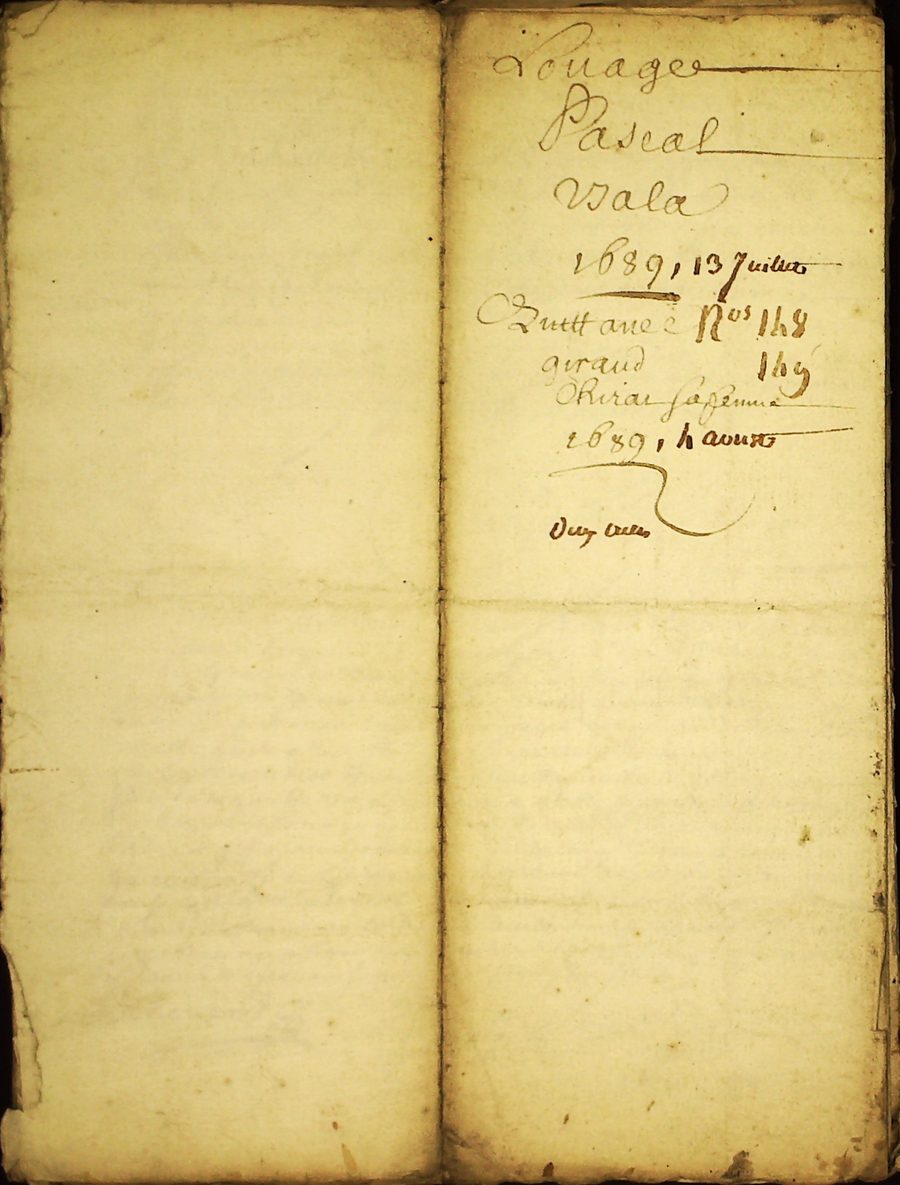 Louage
Pascal
Vala
1689, 13 Juillet
Quittance Nos 148
giraud 149
sa femme
1689, 4 aoust